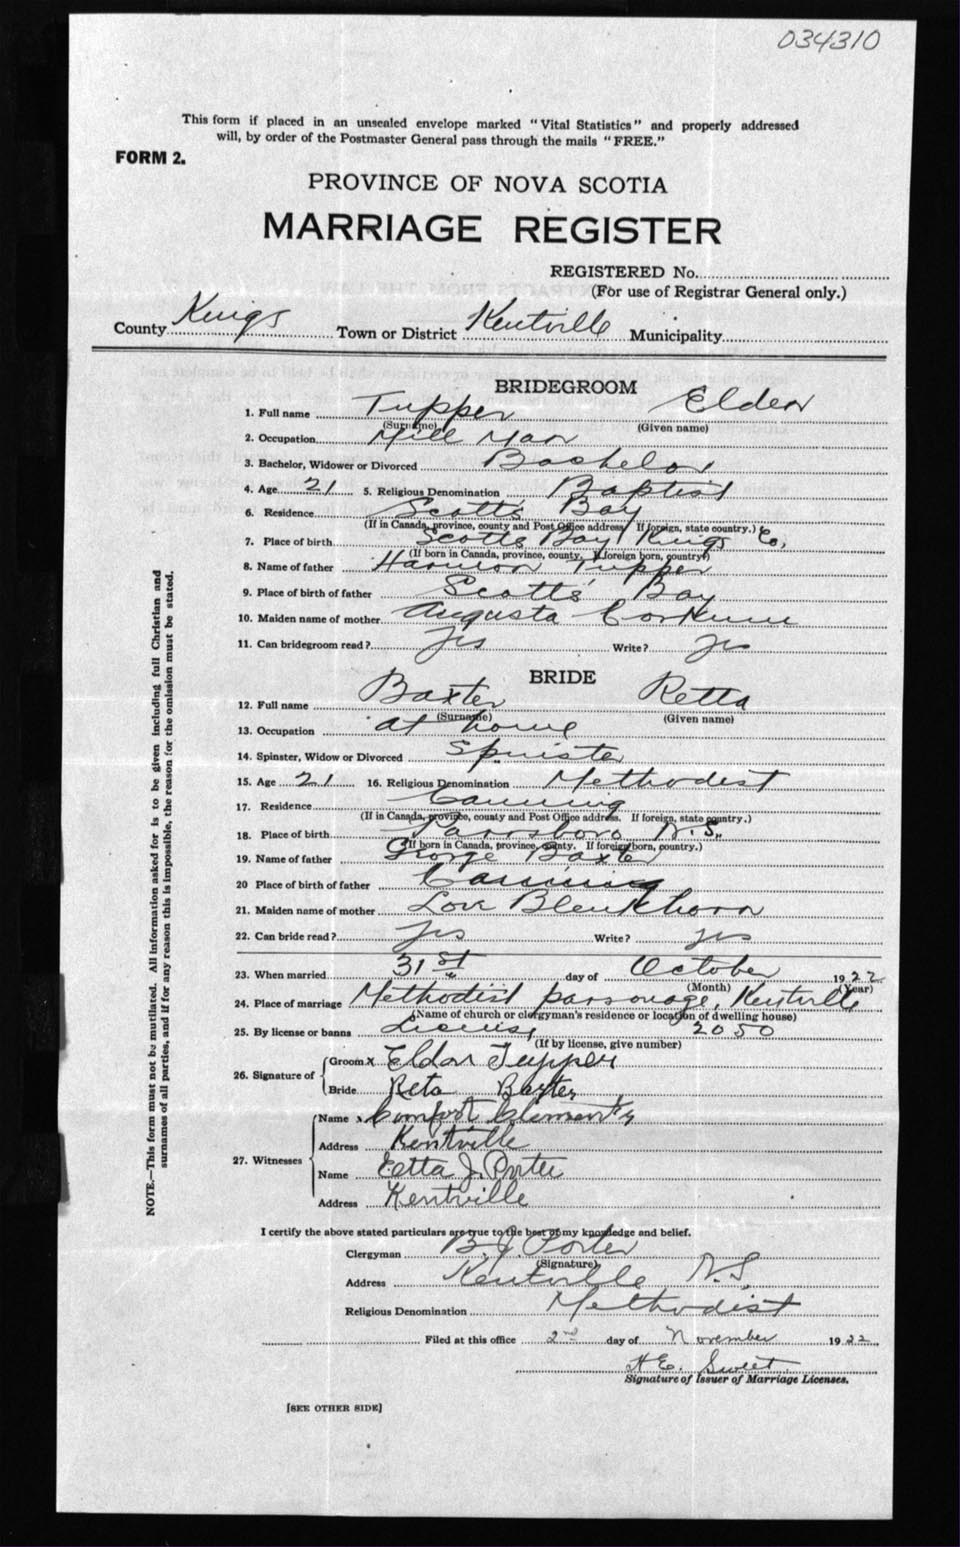 034310
This form if placed in an unsealed envelope marked "Vital Statistics" and properly addressed
will, by order of the Postmaster General pass through the mails "FREE."
FORM 2.
PROVINCE OF NOVA SCOTIA
MARRIAGE REGISTER
REGISTERED No.
(For use of Registrar General only.)
County Kings Town or District Kentville Municipality
BRIDEGROOM
1. Full name Tupper Elden
(Surname) (Given name)
2. Occupation Mill Man
3. Bachelor, Widower or Divorced Bachelor
4. Age 21 5. Religious Denomination Baptist
6. Residence Scotts Bay
(If in Canada, province, county and Post Office address. If foreign, state country.)
7. Place of birth Scotts Bay Kings Co,
(If born in Canada, province, county. If foreign born, country)
8. Name of father Harmon Tupper
9. Place of birth of father Scotts Bay
10. Maiden name of mother Augusta Corkum
11. Can bridegroom read? Yes Write? Yes
BRIDE
12. Full name Baxter Retta
(Surname) (Given name)
13. Occupation at home
14. Spinster, Widow or Divorced Spinster
15. Age 21 16. Religious Denomination Methodist
17. Residence Canning
(If in Canada, province, county and Post Office address. If foreign, state country.)
18. Place of birth Parrsboro N.S.
(If born in Canada, province, county. If foreign born, country.)
19. Name of father George Baxter
20 Place of birth of father Canning
21. Maiden name of mother Love Blenkhorn
22. Can bride read? Yes Write? Yes
23. When married 31st day of October 1922
(Month) (Year)
24. Place of marriage Methodist parsonage, Kentville
(Name of church or clergyman's residence or location of dwelling house)
25. By license or banns License, 2050
(If by license, give number)
26. Signature of Groom X Eldon Tupper
Bride Reta Baxter
27. Witnesses Name x Comfort Clements
Address Kentville
Name Etta J. Porter
Address Kentville
I certify the above stated particulars are true to the best of my knowledge and belief.
Clergyman B. J. Porter
(Signature)
Address Kentville N.S.
Religious Denomination Methodist
Filed at this office 2nd day of November 1922
H.E. Sweet
Signature of Issuer of Marriage Licenses.
[SEE OTHER SIDE]
NOTE.—This form must not be mutilated. All information asked for is to be given including full Christian and
surnames of all parties, and if for any reason this is impossible, the reason for the omission must be stated.